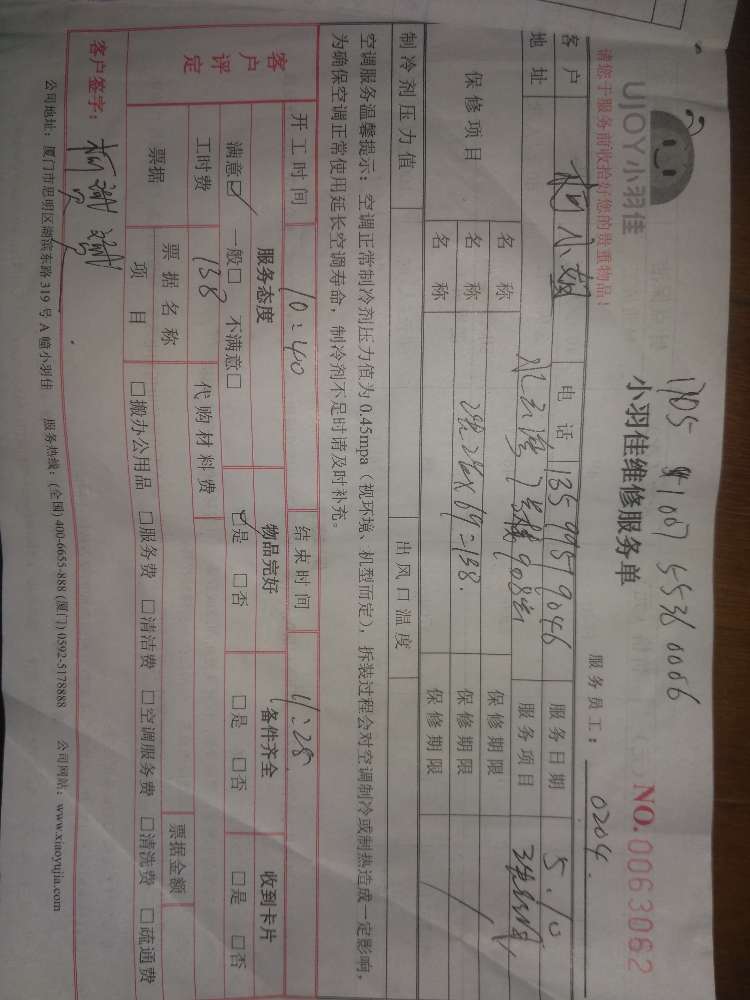 1705 4107 5536 0066
UJOY小羽佳
小羽佳维修服务单
NO.0063062
请您于服务前收拾好您的贵重物品!
服务员工: 0204
客户 柯小姐 电话 13599579046 服务日期 5.10
地址 7号楼908室 服务项目
保修项目 名称 保修期限
名称 2×69=138. 保修期限
名称 保修期限
制冷剂压力值 出风口温度
空调服务温馨提示:空调正常制冷剂压力值为0.45mpa(视环境、机型而定),拆装过程会对空调制冷或制热造成一定影响,
为确保空调正常使用延长空调寿命,制冷剂不足时请及时补充。
开工时间 10:40 结束时间 11:28
客户评定 服务态度 物品完好 备件齐全 收到卡片
满意☑ 一般□ 不满意□ ☑是 □否 □是 □否 □是 □否
工时费 138 代购材料费
票据 票据名称 票据金额
项目 □搬办公用品 □服务费 □清洁费 □空调服务费 □清洗费 □疏通费
客户签字:
公司地址:厦门市思明区湖滨东路319号A幢小羽佳 服务热线:(全国)400-6655-888 (厦门)0592-5178888 公司网站:www.xiaoyujia.com